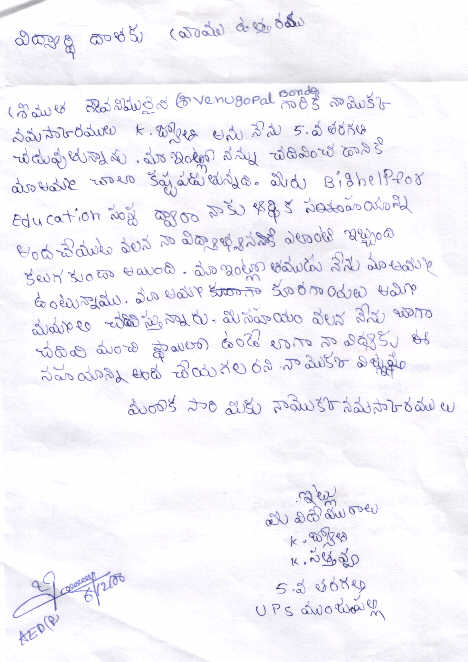 విద్యార్థి దాతకు వ్రాయు ఉత్తరము
శ్రీయుత గౌరవనీయులైన Venugopal Bonda గారికి నాయొక్క
నమస్కారములు K. జ్యోతి అను నేను 5.వ తరగతి
చదువుతున్నాను. మా ఇంట్లో నన్ను చదివించడానికి
మాఅమ్మ చాలా కష్టపడుతున్నది. మీరు BigHelp for
Education సంస్థ ద్వారా నాకు ఆర్థిక సహాయాన్ని
అంద చేయుట వలన నా విద్యాభ్యాసనకి ఎలాంటి ఇబ్బంది
కలుగ కుండా అయింది. మా ఇంట్లో తమ్ముడు నేను మా అమ్మ
ఉంటున్నాము. మా అమ్మ కూరగాయలు అమ్మి
మమ్మలి చదివిస్తున్నారు. మీ సహాయం వలన నేను బాగా
చదివి మంచి స్థాయిలో ఉంటే లాగా నా విద్యకు ఈ
సహాయాన్ని అంద చేయగలరని నా యొక్క విజ్ఞప్తి
మరొక సారి మీకు నాయొక్క నమస్కారములు
ఇట్లు
మీ విధేయురాలు
K. జ్యోతి
K.
5.వ తరగతి
UPS ముంజుపల్లి
6/12/08